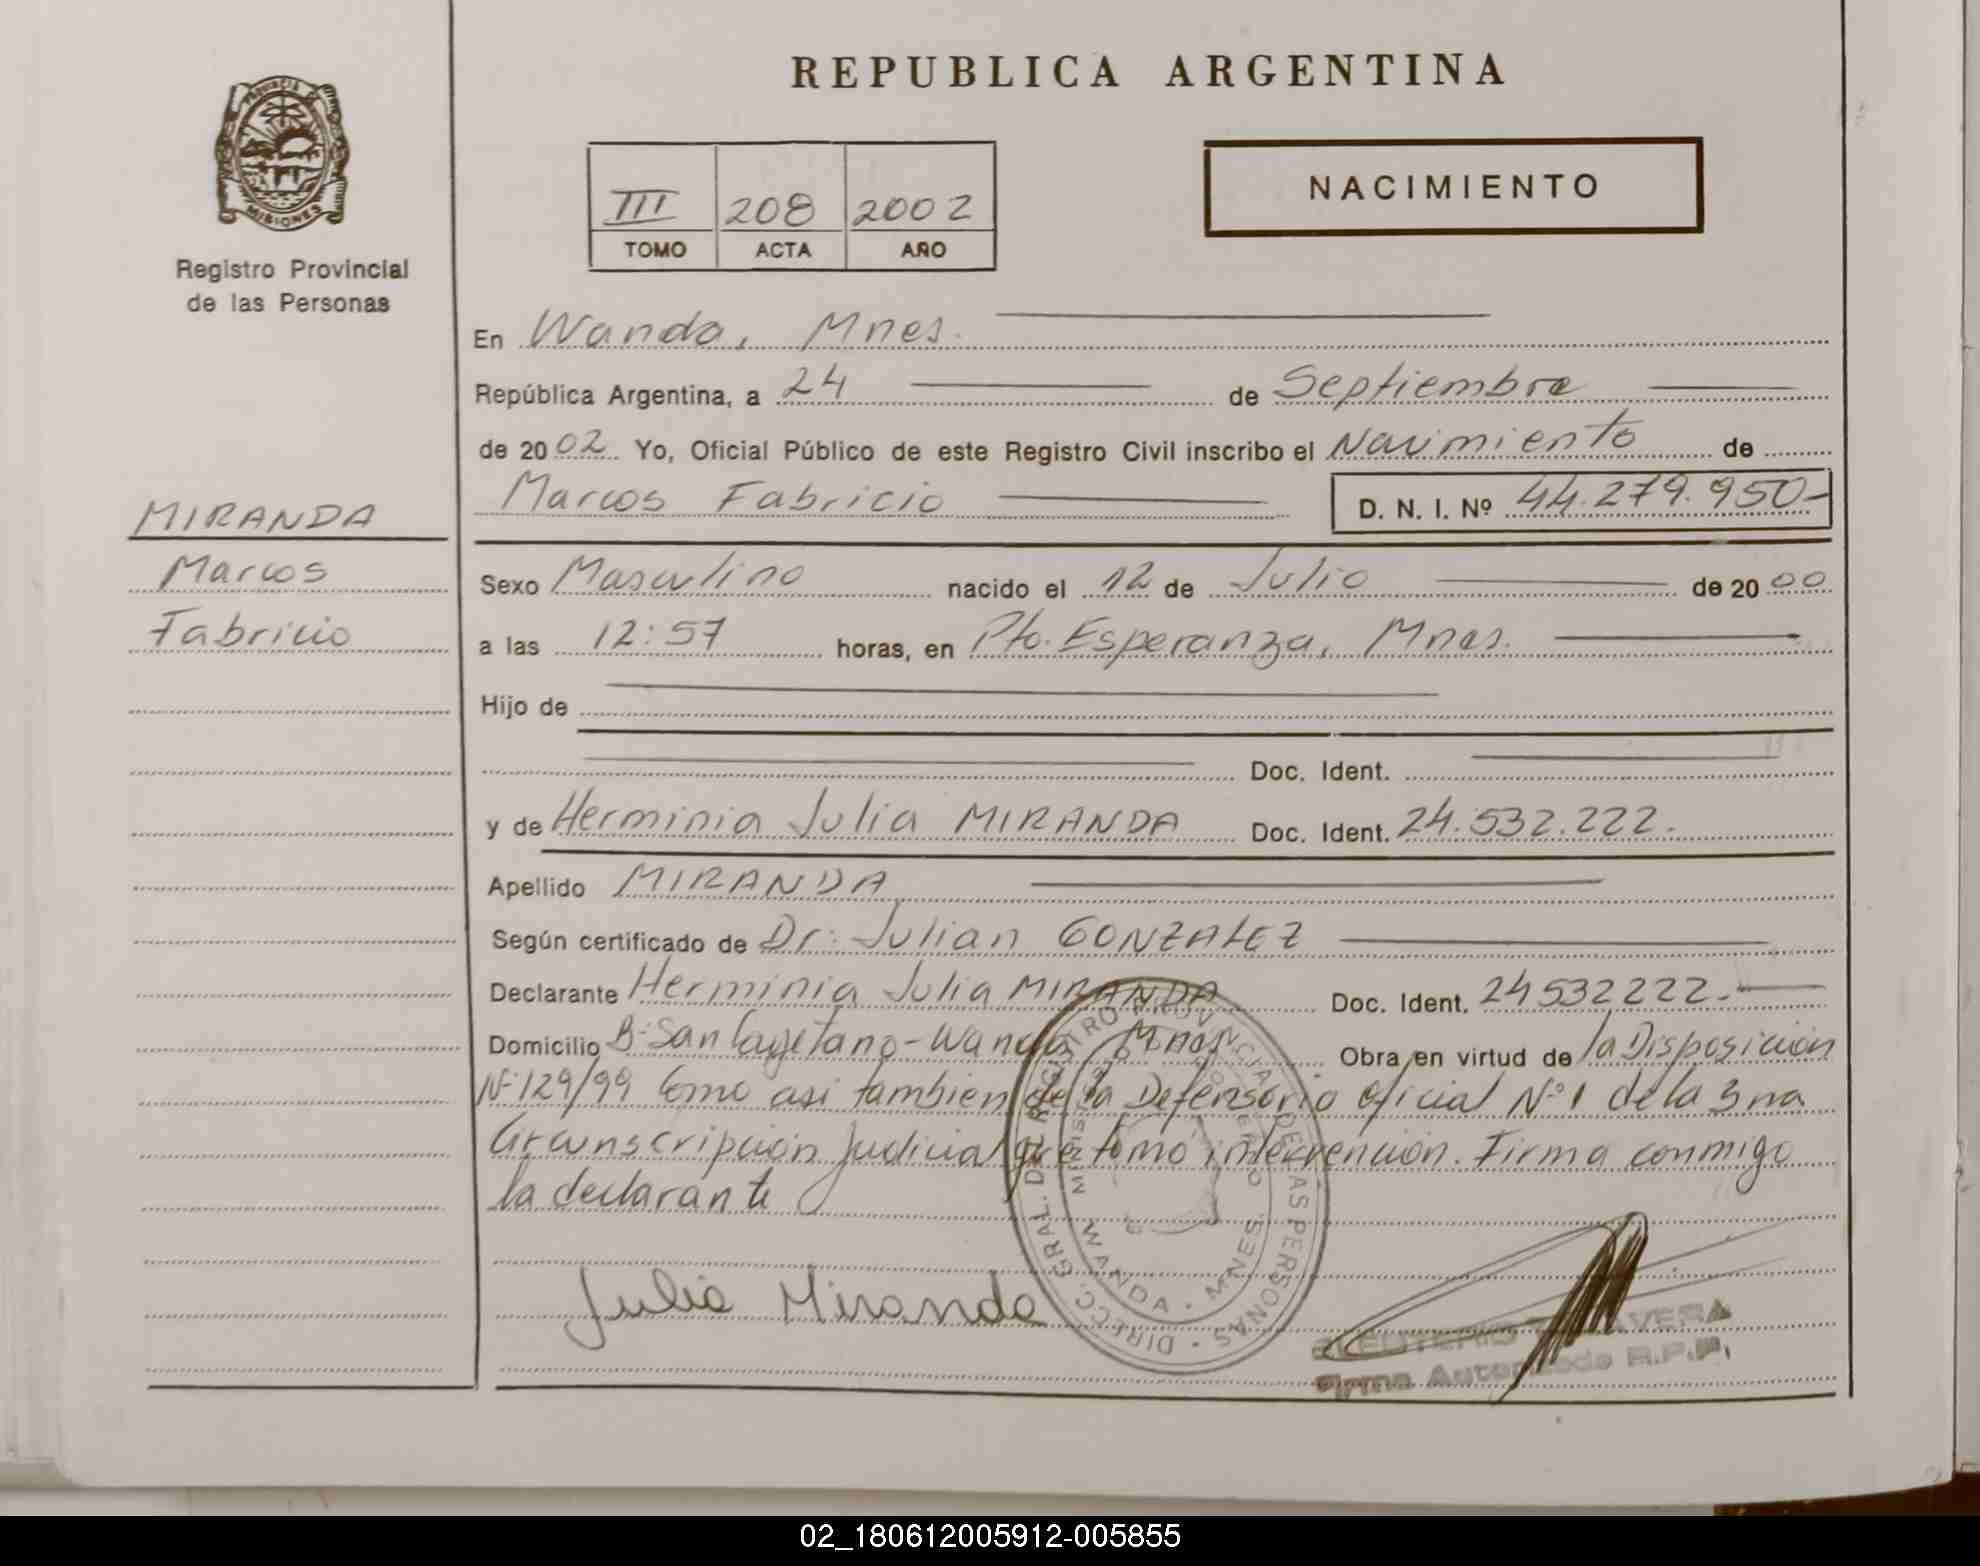 REPUBLICA ARGENTINA
PROVINCIA DE
MISIONES
Registro Provincial
de las Personas
III 208 2002
TOMO ACTA AÑO
NACIMIENTO
En Wanda, Mnes.
República Argentina, a 24 de Septiembre
de 2002 Yo, Oficial Público de este Registro Civil inscribo el Nacimiento de
Marcos Fabricio D. N. I. Nº 44.279.950-
MIRANDA
Marcos
Fabricio
Sexo Masculino nacido el 12 de Julio de 2000
a las 12:57 horas, en Pto. Esperanza, Mnes.
Hijo de
Doc. Ident.
y de Herminia Julia MIRANDA Doc. Ident. 24.532.222.
Apellido MIRANDA
Según certificado de Dr. Julian GONZALEZ
Declarante Herminia Julia MIRANDA Doc. Ident. 24532222.-
Domicilio Bº San Cayetano-Wanda Mnes Obra en virtud de la Disposición
Nº 129/99 Como asi tambien de la Defensoria oficial Nº 1 de la 3ra
Circunscripción Judicial que tomo intervención. Firma conmigo
la declarante
Julia Miranda
DIRECC. GRAL. DE REGISTRO PROVINCIAL DE LAS PERSONAS
MINISTERIO DE GOBIERNO
WANDA - MNES.
ELEUTERIO TALAVERA
Firma Autorizada R.P.P.
02_180612005912-005855